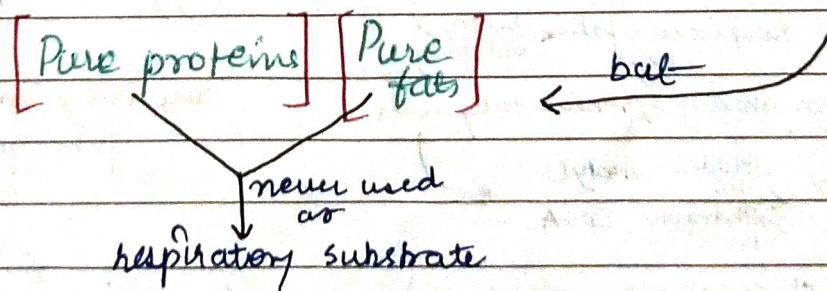 [Pure proteins] [Pure fats]
but
never used
as
respiratory substrate